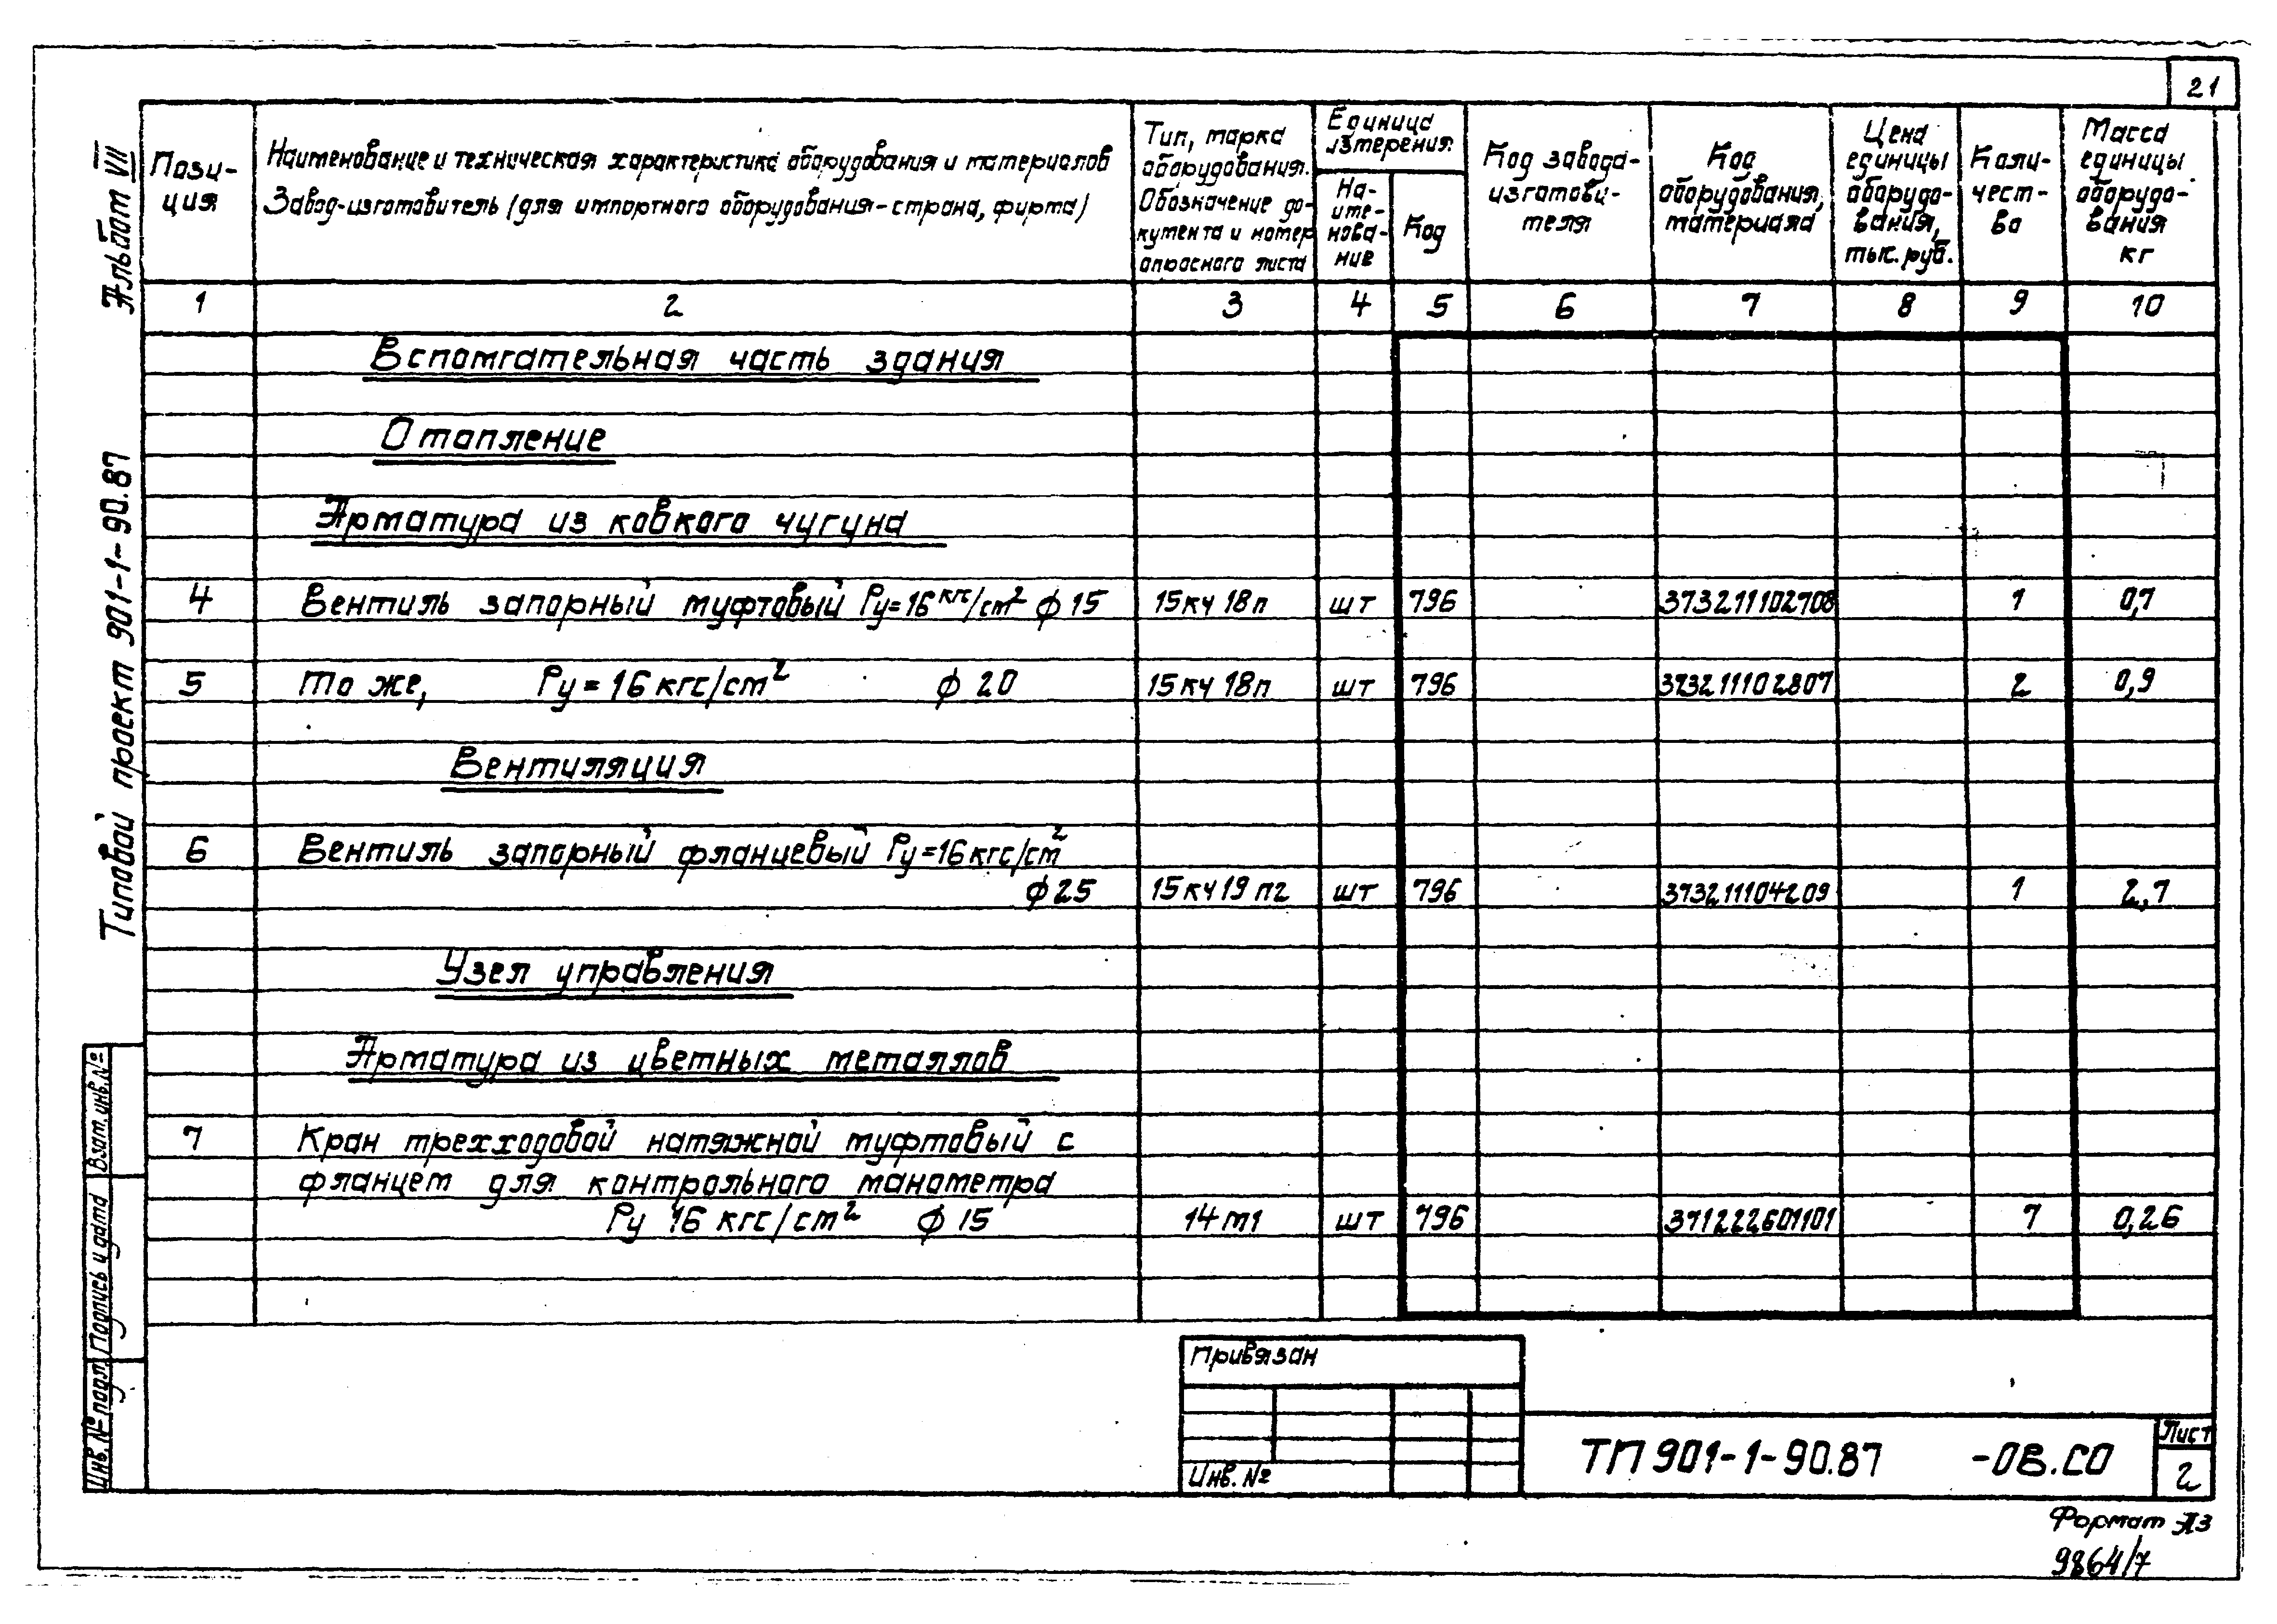 21
Альбом VII
Типовой проект 901-1-90.87
Пози-
ция
Наименование и техническая характеристика оборудования и материалов
Завод-изготовитель (для импортного оборудования-страна, фирма)
Тип, марка
оборудования.
Обозначение до-
кумента и номер
опросного листа
Единица
измерения
На-
име-
нова-
ние
Код
Код завода-
изготови-
теля
Код
оборудования,
материала
Цена
единицы
оборудо-
вания,
тыс. руб.
Коли-
чест-
во
Масса
единицы
оборудо-
вания
кг
1 2 3 4 5 6 7 8 9 10
Вспомгательная часть здания
Отопление
Арматура из ковкого чугуна
4 Вентиль запорный муфтовый Ру=16 кгс/см² ф 15 15кч 18п шт 796 373211102708 1 0,7
5 То же, Ру=16 кгс/см² ф 20 15кч 18п шт 796 373211102807 2 0,9
Вентиляция
6 Вентиль запорный фланцевый Ру=16 кгс/см²
ф 25 15кч 19 п2 шт 796 373211104209 1 2,7
Узел управления
Арматура из цветных металлов
7 Кран трехходовой натяжной муфтовый с
фланцем для контрольного манометра
Ру 16 кгс/см² ф 15 14м1 шт 796 371222601101 7 0,26
Взам. инв. №
Подпись и дата
Инв. № подл.
Привязан
Инв. №
ТП 901-1-90.87 -ОВ.СО
Лист
2
Формат А3
9864/7